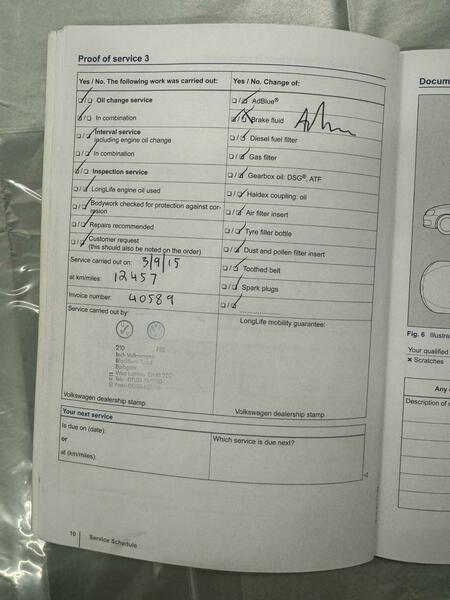 Proof of service 3
Yes / No. The following work was carried out:
Oil change service
In combination
Interval service
including engine oil change
In combination
Inspection service
LongLife engine oil used
Bodywork checked for protection against cor-
rosion
Repairs recommended
Customer request
(this should also be noted on the order)
Service carried out on: 3/9/15
at km/miles: 12457
Invoice number: 40589
Service carried out by:
210
Inch Volkswagen
Bathgate
Volkswagen dealership stamp
Yes / No. Change of:
AdBlue®
Brake fluid
Diesel fuel filter
Gas filter
Gearbox oil: DSG®, ATF
Haldex coupling: oil
Air filter insert
Tyre filler bottle
Dust and pollen filter insert
Toothed belt
Spark plugs
LongLife mobility guarantee:
Volkswagen dealership stamp
Your next service
Is due on (date):
or
at (km/miles):
Which service is due next?
10
Service Schedule
Docum
Fig. 6 Illustra
Your qualified
× Scratches
Any
Description of